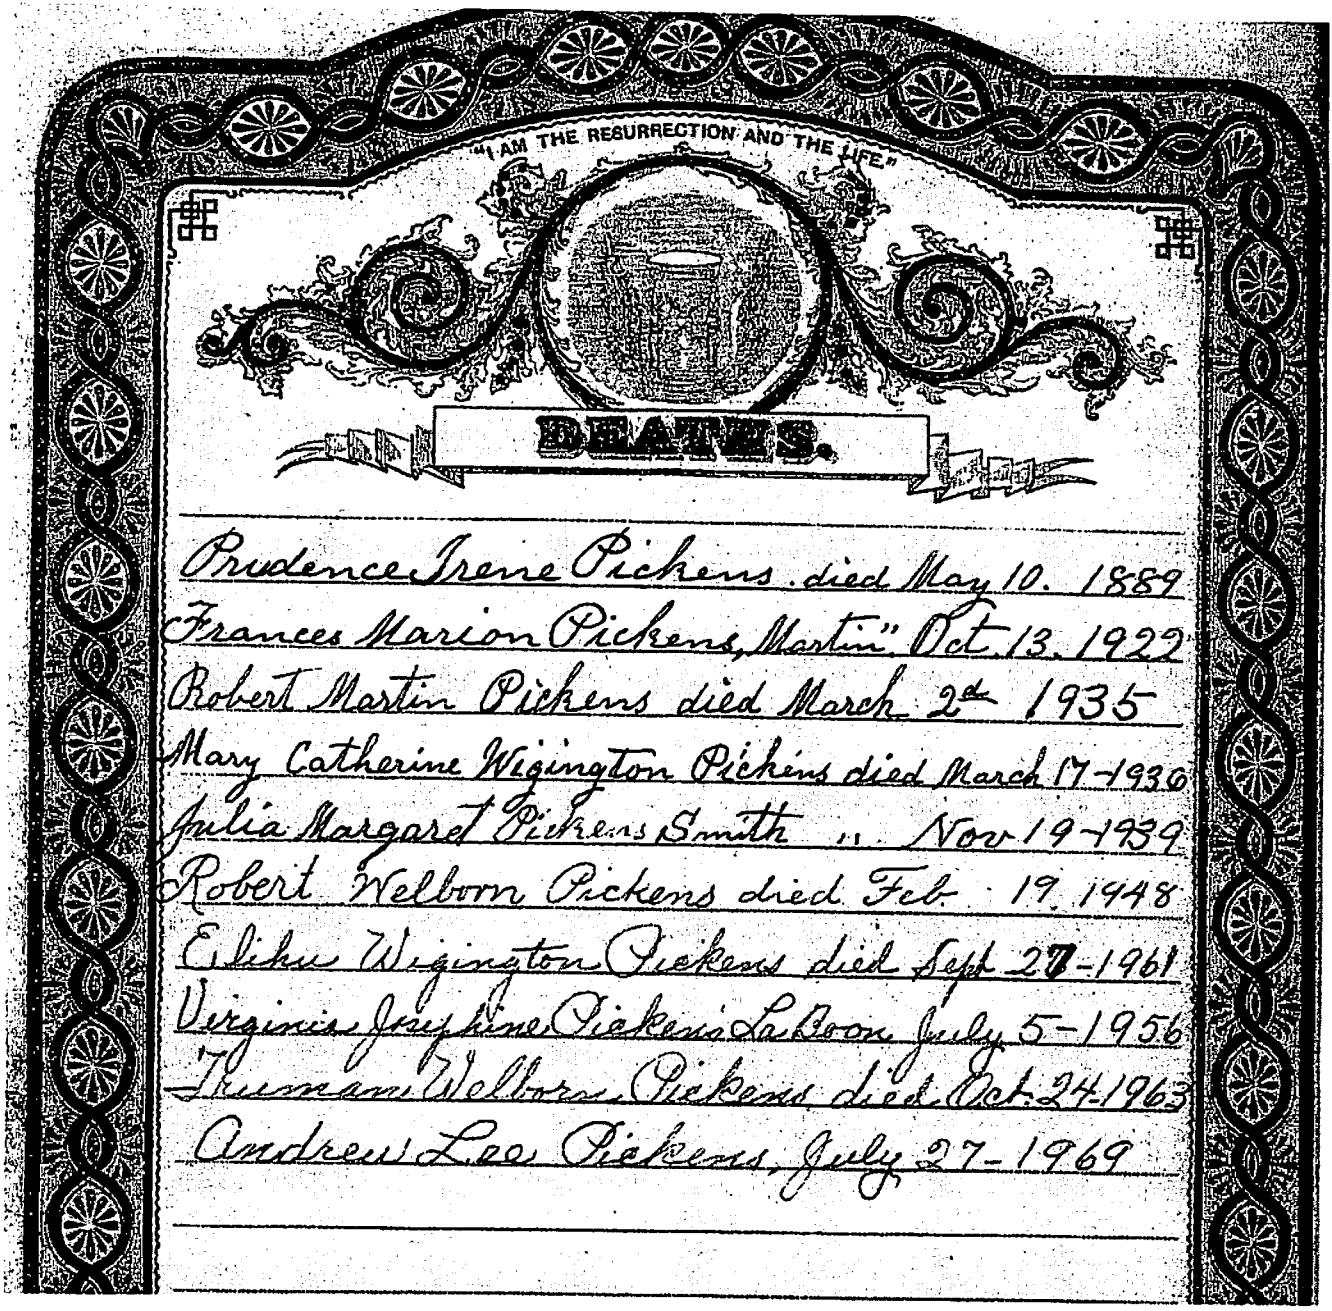 "I AM THE RESURRECTION AND THE LIFE."
DEATHS.
Prudence Irene Pickens died May 10. 1889
Frances Marion Pickens, Martin " Oct. 13. 1922
Robert Martin Pickens died March 2d 1935
Mary Catherine Wigington Pickens died March 17-1936
Julia Margaret Pickens Smith " Nov 19-1939
Robert Welborn Pickens died Feb 19. 1948
Elihu Wigington Pickens died Sept 27-1961
Virginia Josephine Pickens LaBoon July 5-1956
Truman Welborn Pickens died Oct. 24-1963
Andrew Lee Pickens, July 27-1969